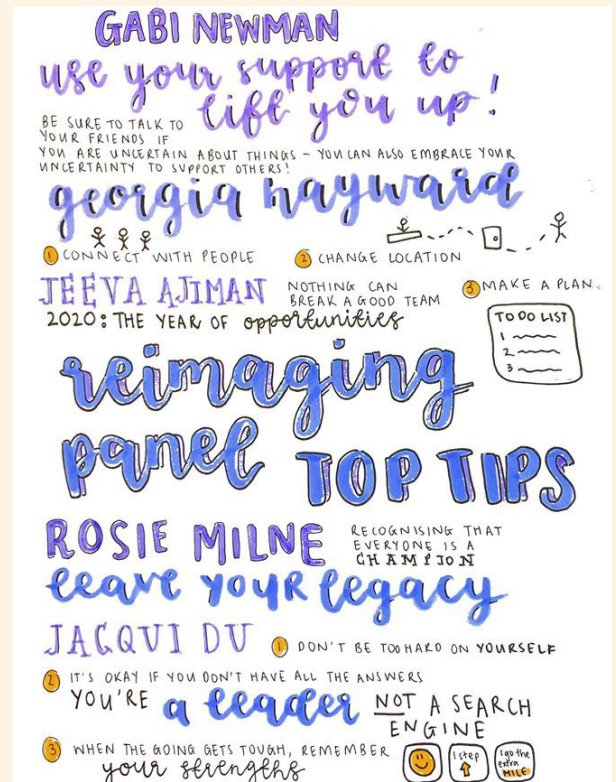 GABI NEWMAN
use your support to
lift you up!
BE SURE TO TALK TO
YOUR FRIENDS IF
YOU ARE UNCERTAIN ABOUT THINGS - YOU CAN ALSO EMBRACE YOUR
UNCERTAINTY TO SUPPORT OTHERS!
georgia hayward
1 CONNECT WITH PEOPLE
2 CHANGE LOCATION
JEEVA AJIMAN
NOTHING CAN
BREAK A GOOD TEAM
3 MAKE A PLAN
2020: THE YEAR OF opportunities
TO DO LIST
1
2
3
reimaging
panel TOP TIPS
ROSIE MILNE
RECOGNISING THAT
EVERYONE IS A
CHAMPION
leave YOUR legacy
JACQUI DU
1 DON'T BE TOO HARD ON YOURSELF
2 IT'S OKAY IF YOU DON'T HAVE ALL THE ANSWERS
YOU'RE a leader NOT A SEARCH
ENGINE
3 WHEN THE GOING GETS TOUGH, REMEMBER
your strengths
1 step
I go the
extra
MILE